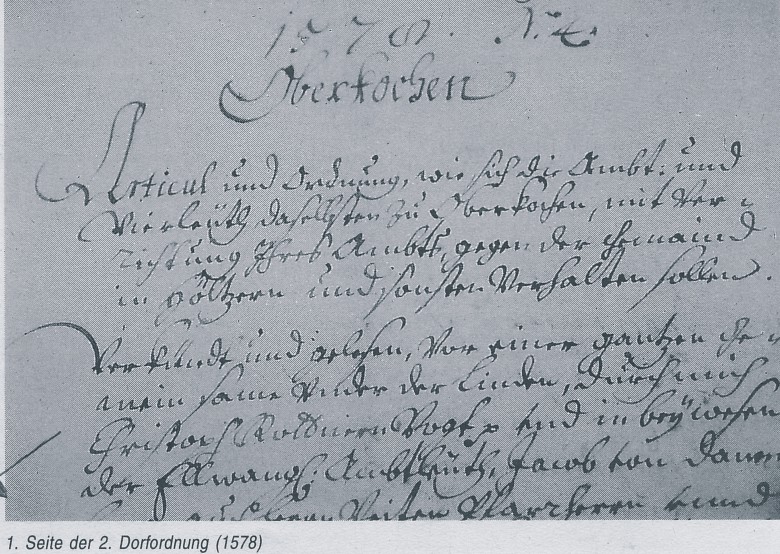 1578. N. 4.
Oberkochen
Articul und Ordnung, wie sich die Ambt: und
Vierleüth daselbsten zu Oberkochen, mit Ver=
richtung Ihres Ambts, gegen der gemaind
in Höltzern und sonsten Verhalten sollen.
Verkündt und gelesen, Vor einer gantzen ge=
mein same Vnder der Linden, durch mich
Christoph Vogt vnd in beywesen
der Ellwang: Ambtleüth, Jacob von
Veiten Pfarrherrn vnnd
1. Seite der 2. Dorfordnung (1578)